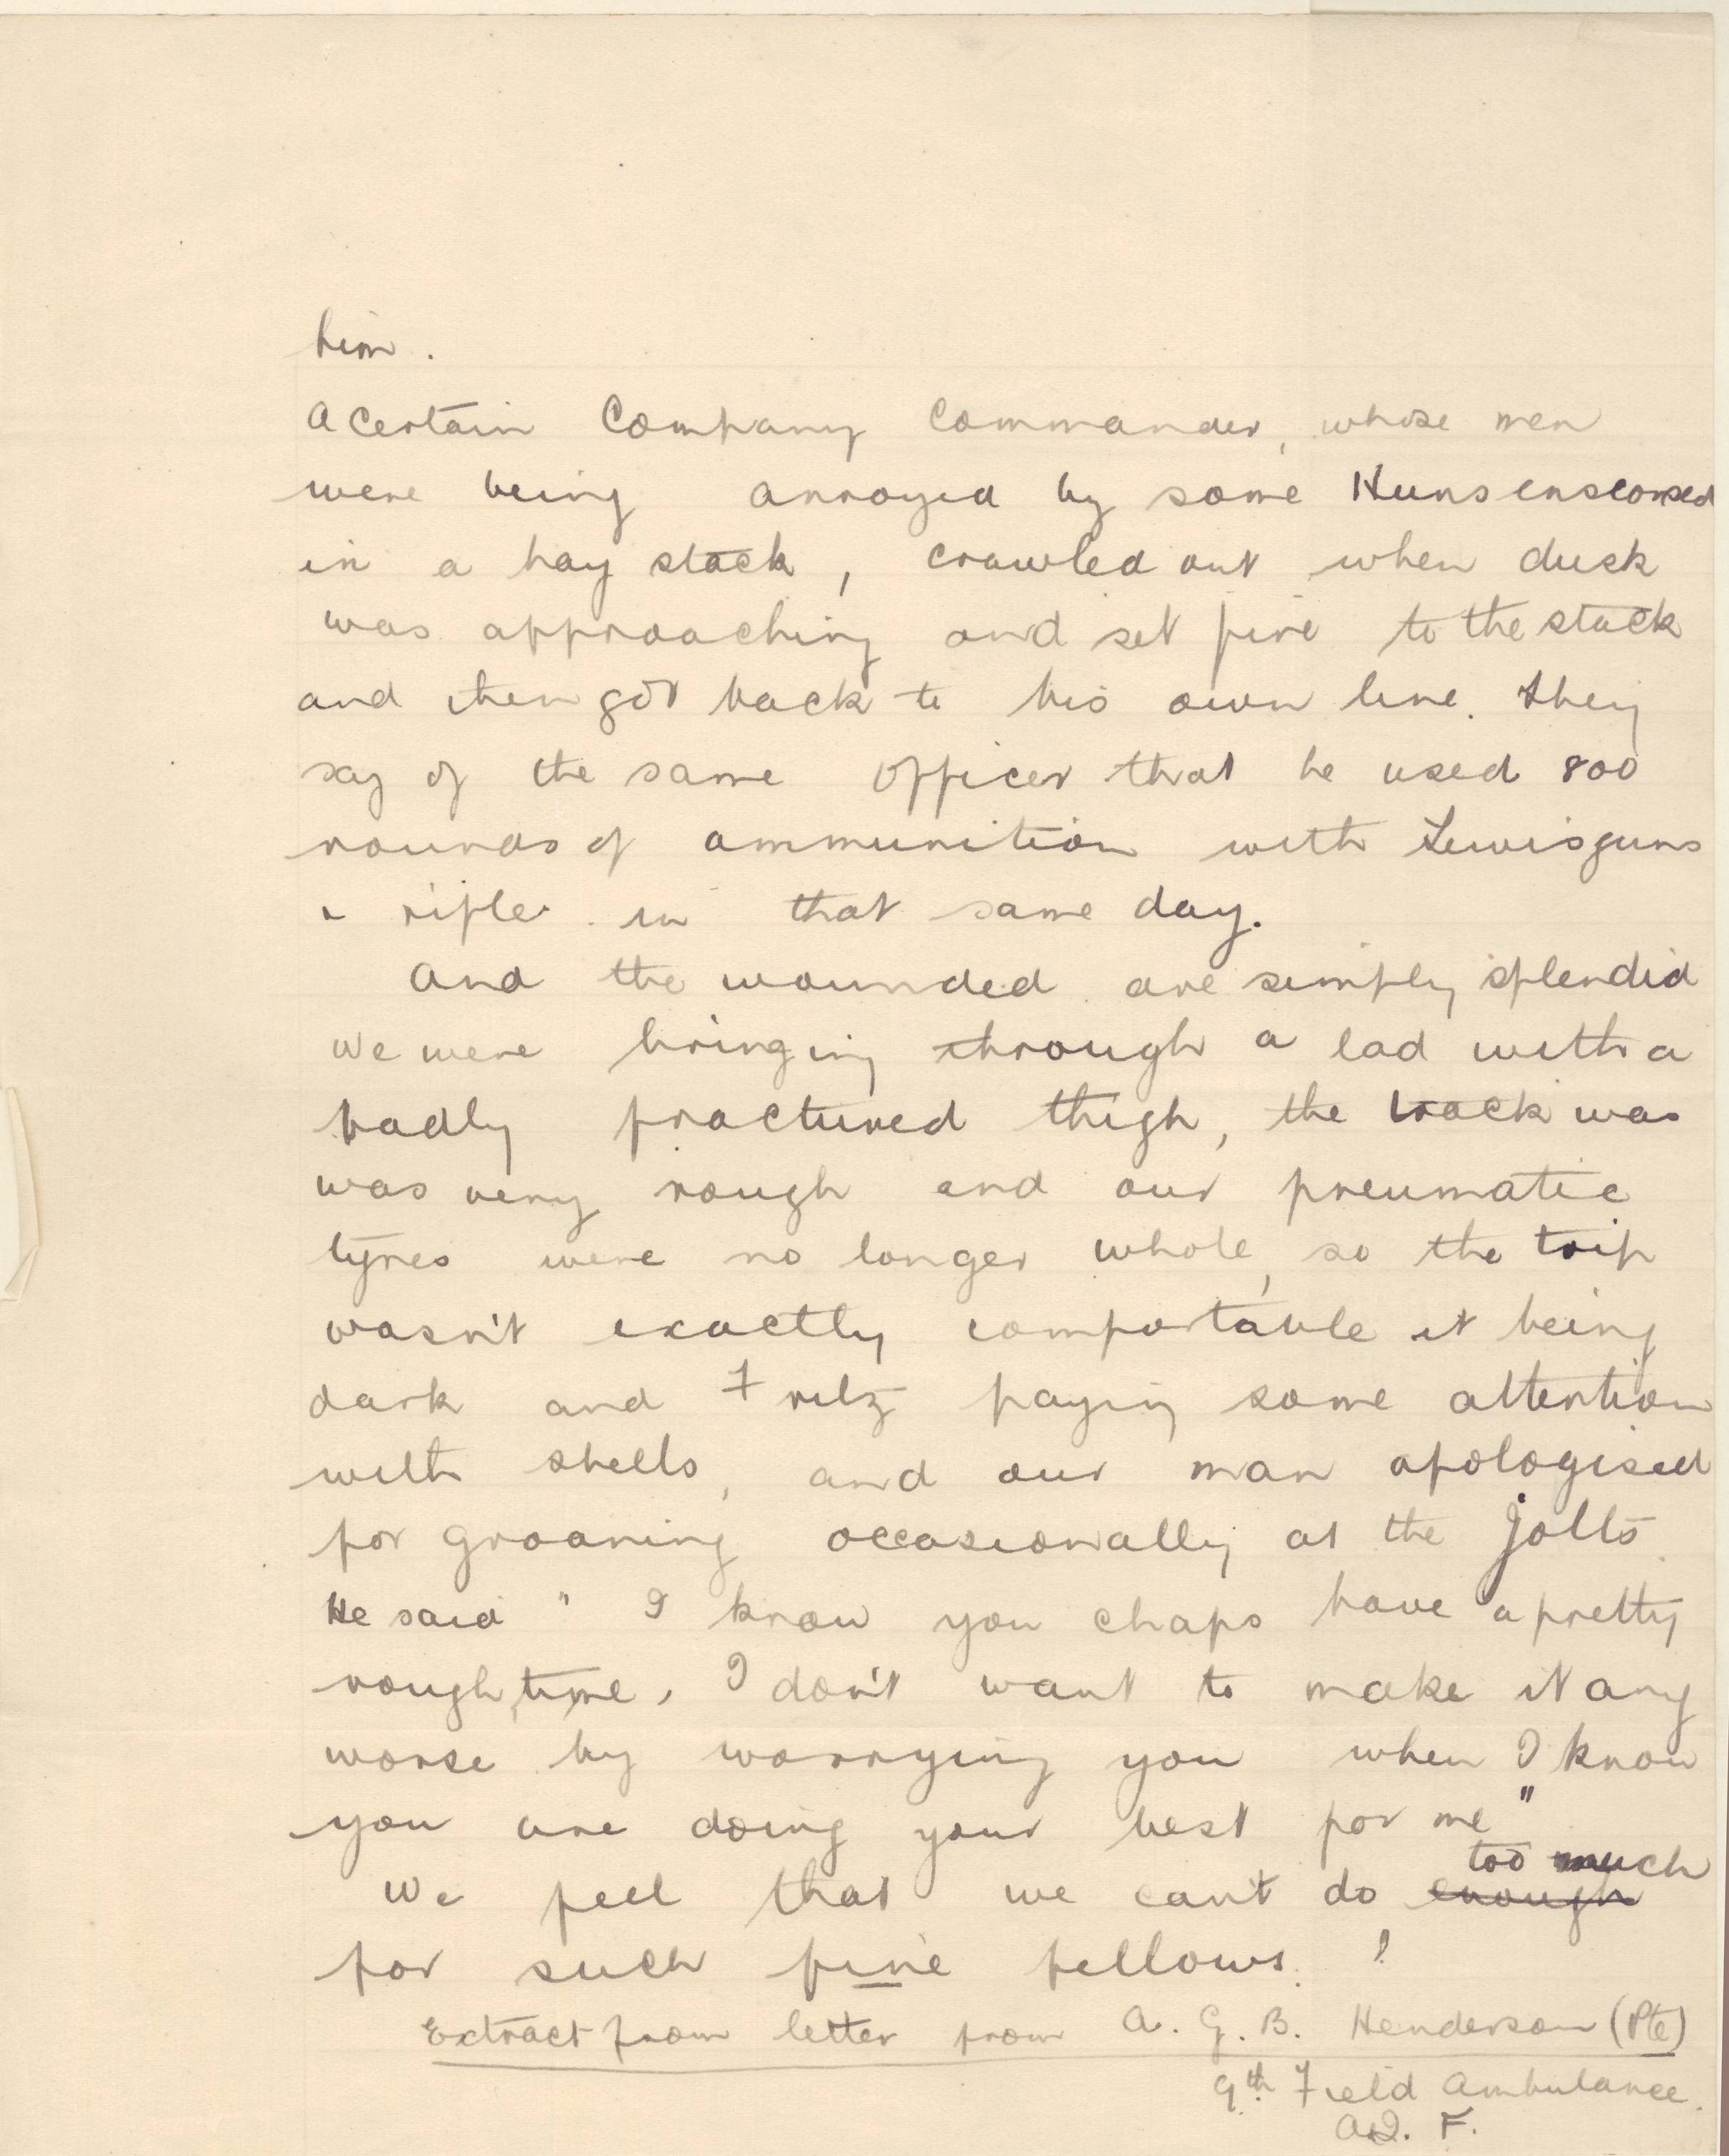 him.
A certain Company Commander, whose men
were being annoyed by some Huns ensconsed
in a hay stack, crawled out when dusk
was approaching and set fire to the stack
and then got back to his own line. They
say of the same officer that he used 800
rounds of ammunition with Lewis guns
& rifle in that same day.
And the wounded are simply splendid
We were bringing through a lad with a
badly fractured thigh, the track was
was very rough and our pneumatic
tyres were no longer whole, so the trip
wasn't exactly comfortable it being
dark and Fritz paying some attention
with shells, and our man apologised
for groaning occasionally at the jolts.
He said " I know you chaps have a pretty
rough time, I don't want to make it any
worse by worrying you when I know
you are doing your best for me"
too much
We feel that we can't do enough
for such fine fellows. !
Extract from letter from A. G. B. Henderson (Pte)
9th Field Ambulance.
A.I.F.